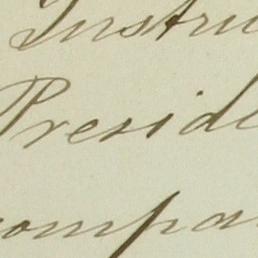 Instru
Preside
ompa